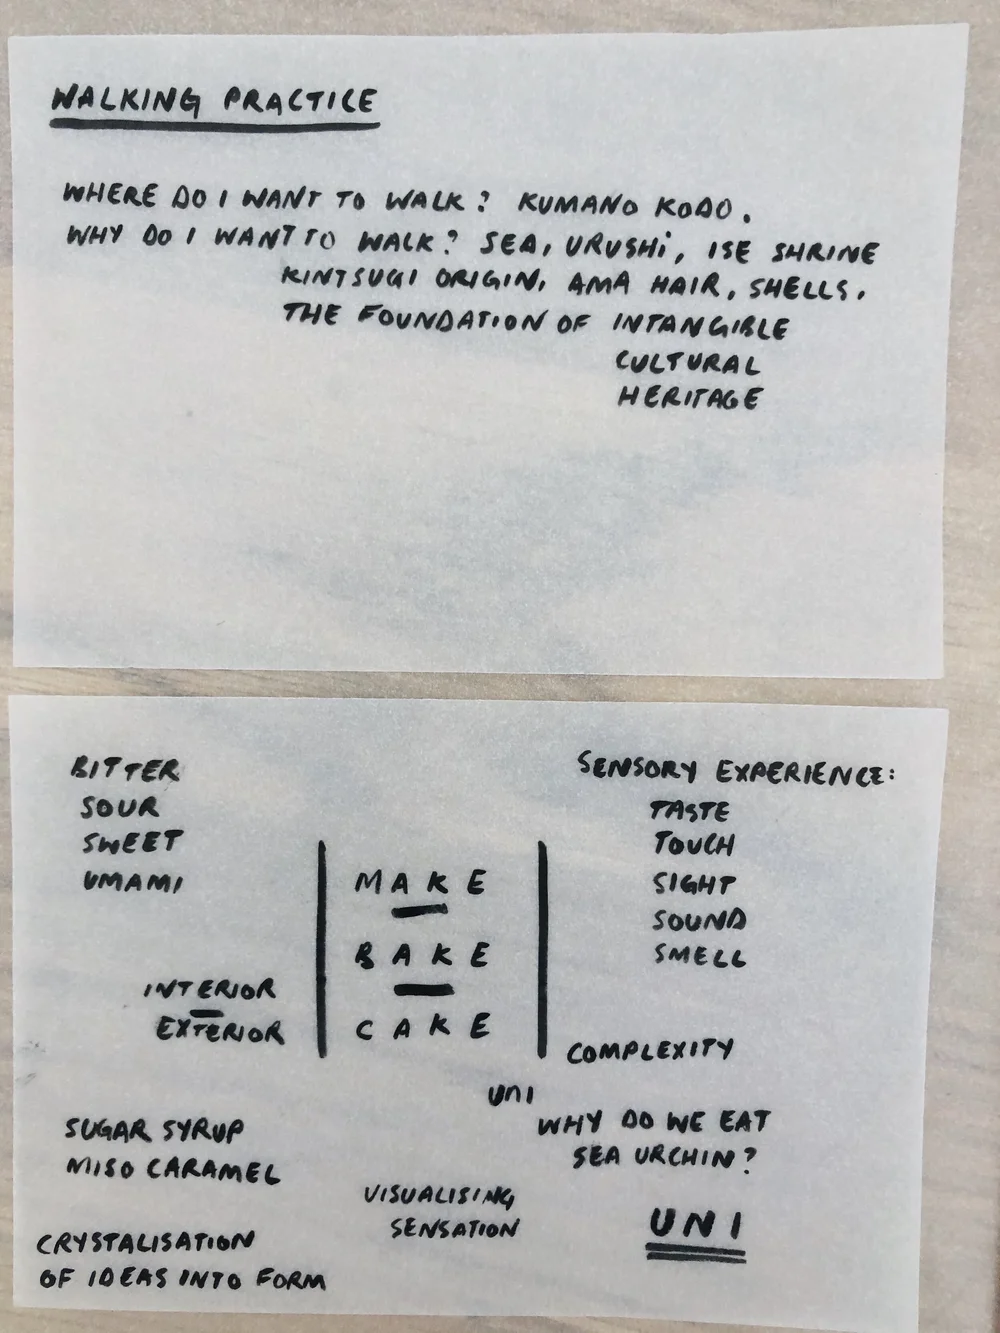 WALKING PRACTICE
WHERE DO I WANT TO WALK? KUMANO KODO.
WHY DO I WANT TO WALK? SEA, URUSHI, ISE SHRINE
KINTSUGI ORIGIN, AMA HAIR, SHELLS.
THE FOUNDATION OF INTANGIBLE
CULTURAL
HERITAGE
BITTER
SOUR
SWEET
UMAMI
INTERIOR
EXTERIOR
MAKE
BAKE
CAKE
SENSORY EXPERIENCE:
TASTE
TOUCH
SIGHT
SOUND
SMELL
COMPLEXITY
UNI
WHY DO WE EAT
SEA URCHIN?
UNI
SUGAR SYRUP
MISO CARAMEL
VISUALISING
SENSATION
CRYSTALISATION
OF IDEAS INTO FORM